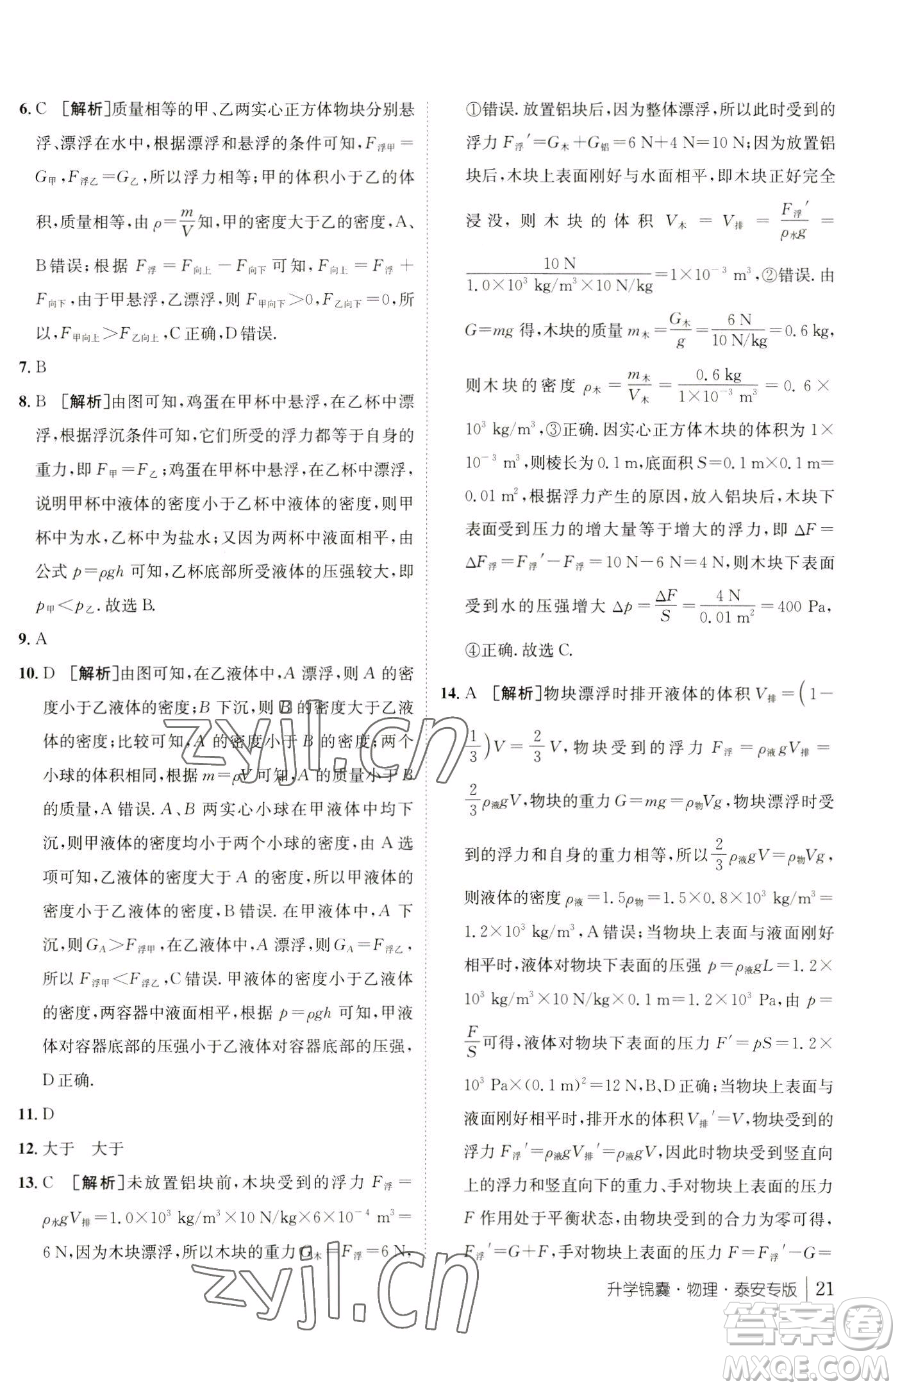 6. C [解析]质量相等的甲、乙两实心正方体物块分别悬
浮、漂浮在水中,根据漂浮和悬浮的条件可知,F浮甲=
G甲,F浮乙=G乙,所以浮力相等.甲的体积小于乙的体
积,质量相等,由 ρ=m/V知,甲的密度大于乙的密度,A、
B错误;根据 F浮=F向上-F向下可知,F向上=F浮+
F向下,由于甲悬浮,乙漂浮,则 F甲向下>0,F乙向下=0,所
以,F甲向上>F乙向上,C正确,D错误.
7. B
8. B [解析]由图可知,鸡蛋在甲杯中悬浮,在乙杯中漂
浮,根据浮沉条件可知,它们所受的浮力都等于自身的
重力,即 F甲=F乙;鸡蛋在甲杯中悬浮,在乙杯中漂浮,
说明甲杯中液体的密度小于乙杯中液体的密度,则甲
杯中为水,乙杯中为盐水;又因为两杯中液面相平,由
公式 p=ρgh 可知,乙杯底部所受液体的压强较大,即
p甲<p乙.故选B.
9. A
10. D [解析]由图可知,在乙液体中,A 漂浮,则 A 的密
度小于乙液体的密度;B 下沉,则 B 的密度大于乙液
体的密度;比较可知,A 的密度小于 B 的密度;两个
小球的体积相同,根据 m=ρV 可知,A 的质量小于 B
的质量,A错误. A、B 两实心小球在甲液体中均下
沉,则甲液体的密度均小于两个小球的密度;由 A 选
项可知,乙液体的密度大于 A 的密度,所以甲液体的
密度小于乙液体的密度,B错误.在甲液体中,A 下
沉,则 GA>F浮甲,在乙液体中,A 漂浮,则 GA=F浮乙,
所以 F浮甲<F浮乙,C错误.甲液体的密度小于乙液体
的密度,两容器中液面相平,根据 p=ρgh 可知,甲液
体对容器底部的压强小于乙液体对容器底部的压强,
D正确.
11. D
12. 大于 大于
13. C [解析]未放置铝块前,木块受到的浮力 F浮=
ρ水gV排=1.0×10³ kg/m³×10 N/kg×6×10⁻⁴ m³=
6 N,因为木块漂浮,所以木块的重力 G木=F浮=6 N,
①错误.放置铝块后,因为整体漂浮,所以此时受到的
浮力 F浮′=G木+G铝=6 N+4 N=10 N;因为放置铝
块后,木块上表面刚好与水面相平,即木块正好完全
浸没,则木块的体积 V木=V排=F浮′/ρ水g=
10 N/(1.0×10³ kg/m³×10 N/kg)=1×10⁻³ m³,②错误.由
G=mg 得,木块的质量 m木=G木/g=6 N/(10 N/kg)=0.6 kg,
则木块的密度 ρ木=m木/V木=0.6 kg/(1×10⁻³ m³)=0.6×
10³ kg/m³,③正确.因实心正方体木块的体积为 1×
10⁻³ m³,则棱长为 0.1 m,底面积 S=0.1 m×0.1 m=
0.01 m²,根据浮力产生的原因,放入铝块后,木块下
表面受到压力的增大量等于增大的浮力,即 ΔF=
ΔF浮=F浮′-F浮=10 N-6 N=4 N,则木块下表面
受到水的压强增大 Δp=ΔF/S=4 N/0.01 m²=400 Pa,
④正确.故选C.
14. A [解析]物块漂浮时排开液体的体积 V排=(1-
1/3)V=2/3 V,物块受到的浮力 F浮=ρ液gV排=
2/3 ρ液gV,物块的重力 G=mg=ρ物Vg,物块漂浮时受
到的浮力和自身的重力相等,则 2/3 ρ液gV=ρ物Vg,
则液体的密度 ρ液=1.5ρ物=1.5×0.8×10³ kg/m³=
1.2×10³ kg/m³,A错误;当物块上表面与液面刚好
相平时,液体对物块下表面的压强 p=ρ液gL=1.2×
10³ kg/m³×10 N/kg×0.1 m=1.2×10³ Pa,由 p=
F/S可得,液体对物块下表面的压力 F′=pS=1.2×
10³ Pa×(0.1 m)²=12 N,B、D正确;当物块上表面与
液面刚好相平时,排开水的体积 V排′=V,物块受到的
浮力 F浮′=ρ液gV排′=ρ液gV,因为物块受到竖直向
上的浮力和竖直向下的重力、手对物块竖直向下的压力
F 作用处于平衡状态,由物块受到的合力为零可得,
F浮′=G+F,手对物块上表面的压力 F=F浮′-G=
升学锦囊·物理·泰安专版 21
zyjl.cn
答案圈
MXQE.COM